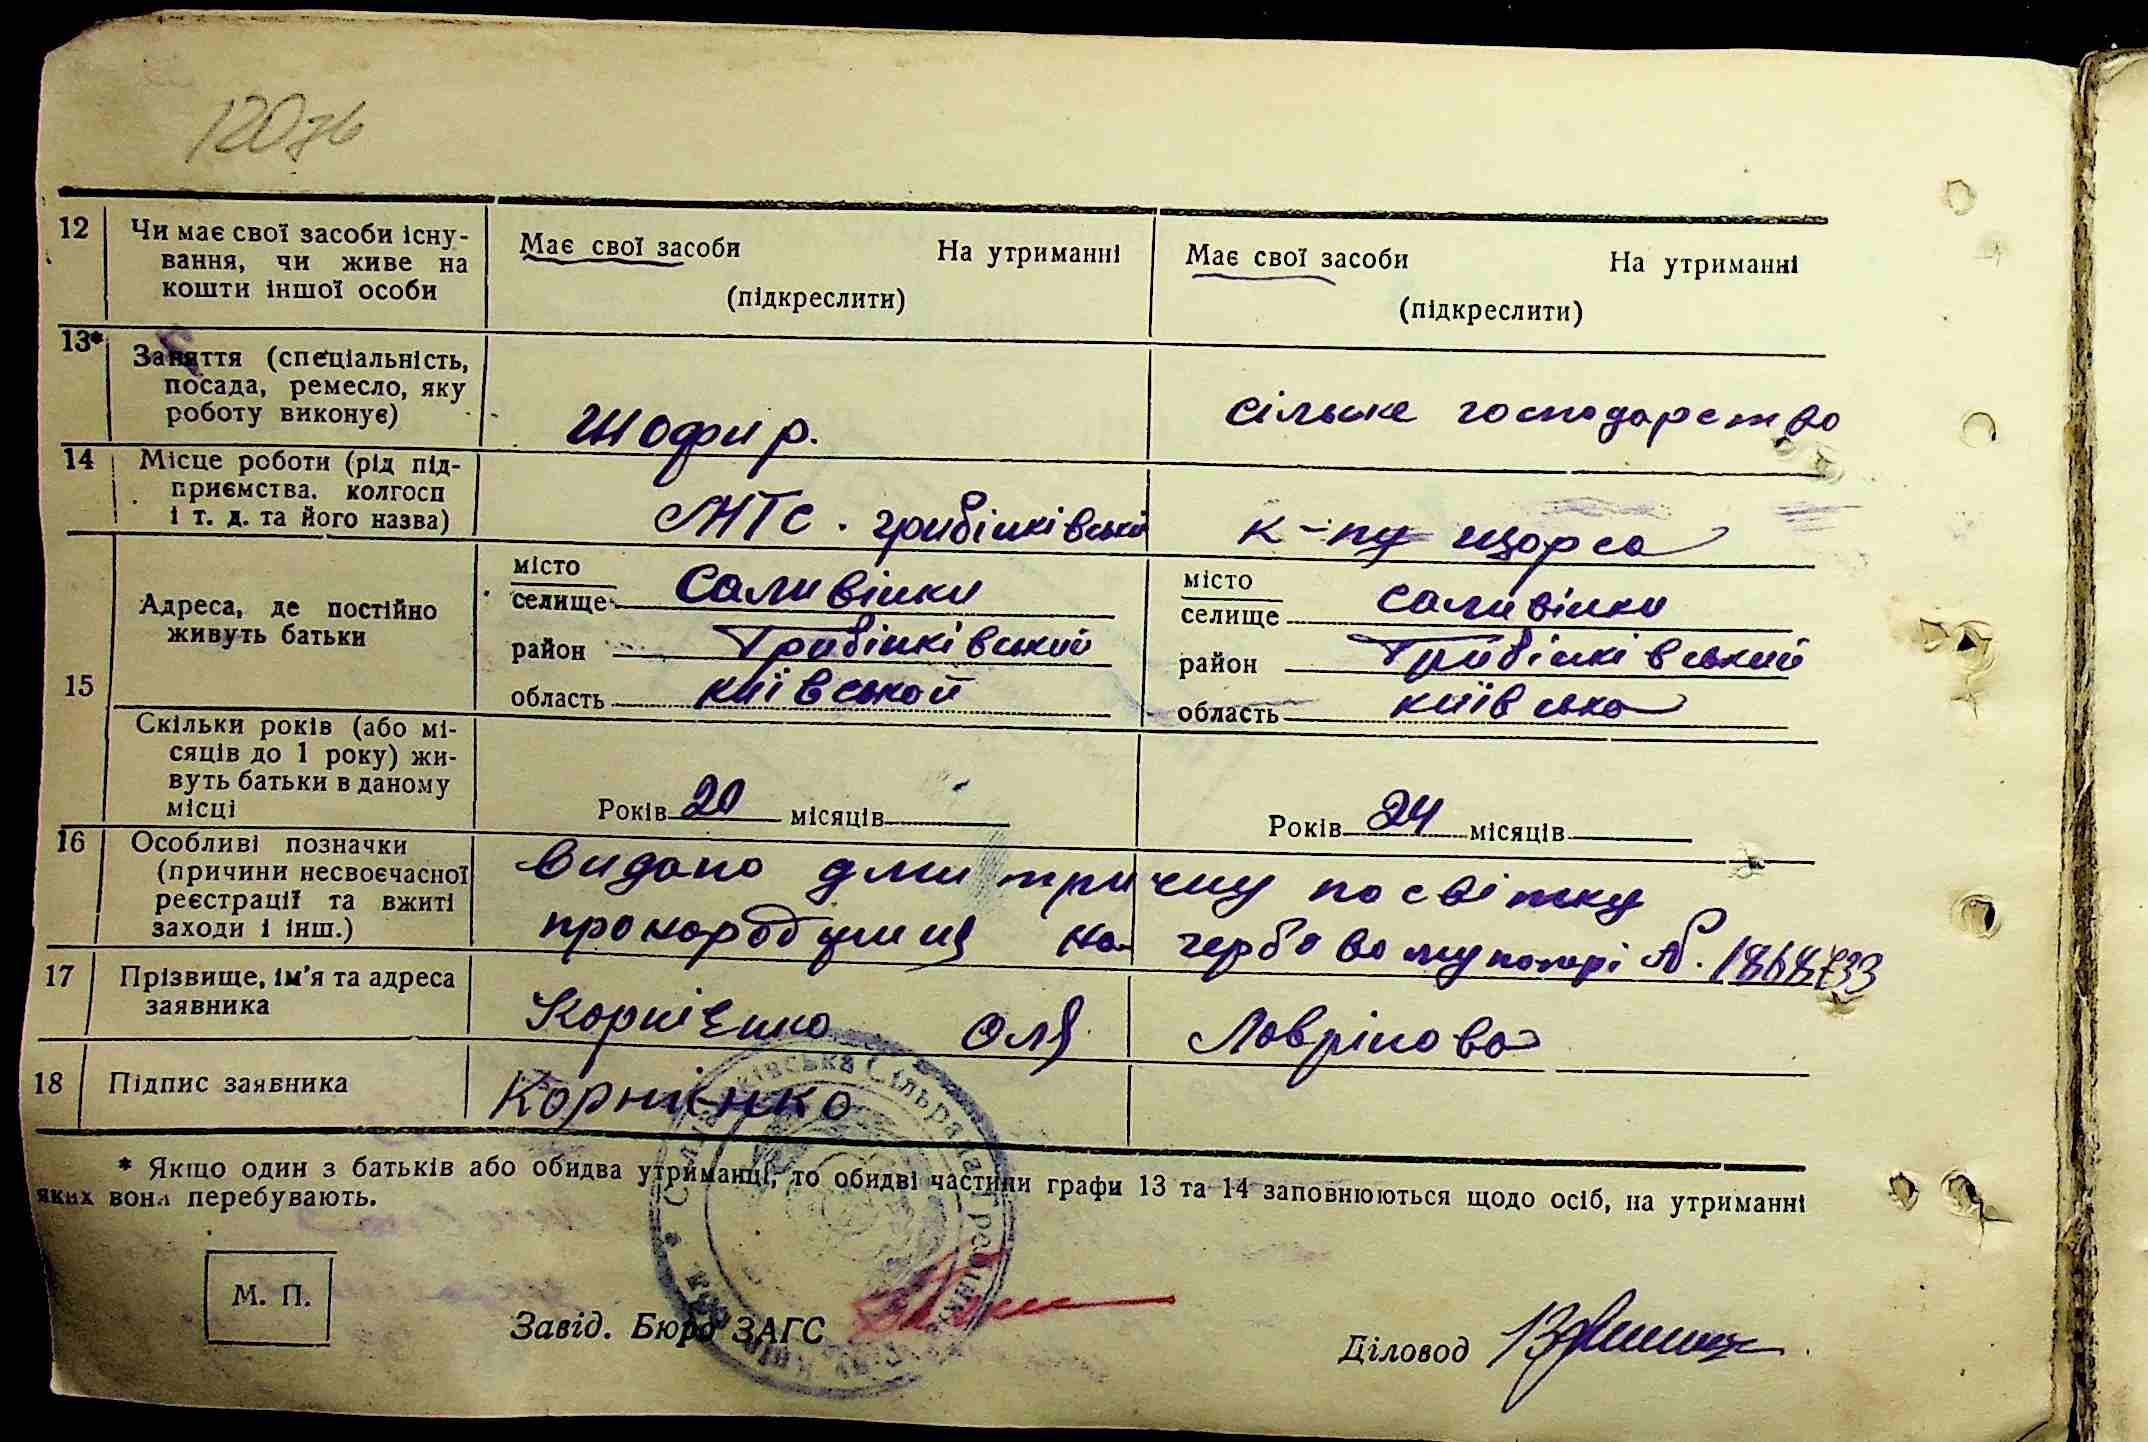 120зв
12 Чи має свої засоби існу-
вання, чи живе на
кошти іншої особи
Має свої засоби На утриманні
(підкреслити)
Має свої засоби На утриманні
(підкреслити)
13* Заняття (спеціальність,
посада, ремесло, яку
роботу виконує)
Шофир.
сільське господарство
14 Місце роботи (рід під-
приємства. колгосп
і т. д. та його назва)
МТС. грибінківській
к-пу щорса
15 Адреса, де постійно
живуть батьки
місто
селище Саливінки
район Грибінківський
область київській
місто
селище саливінки
район Грибінківський
область київська
Скільки років (або мі-
сяців до 1 року) жи-
вуть батьки в даному
місці
Років 20 місяців
Років 24 місяців
16 Особливі позначки
(причини несвоєчасної
реєстрації та вжиті
заходи і інш.)
видано посвітку
на гербовому папері №. 1868733
17 Прізвище, ім'я та адреса
заявника
Корнієнко Оля Лаврінова
18 Підпис заявника
Корниенко
* Якщо один з батьків або обидва утриманці, то обидві частини графи 13 та 14 заповнюються щодо осіб, на утриманні
яких вони перебувають.
М. П.
Завід. Бюро ЗАГС
Діловод